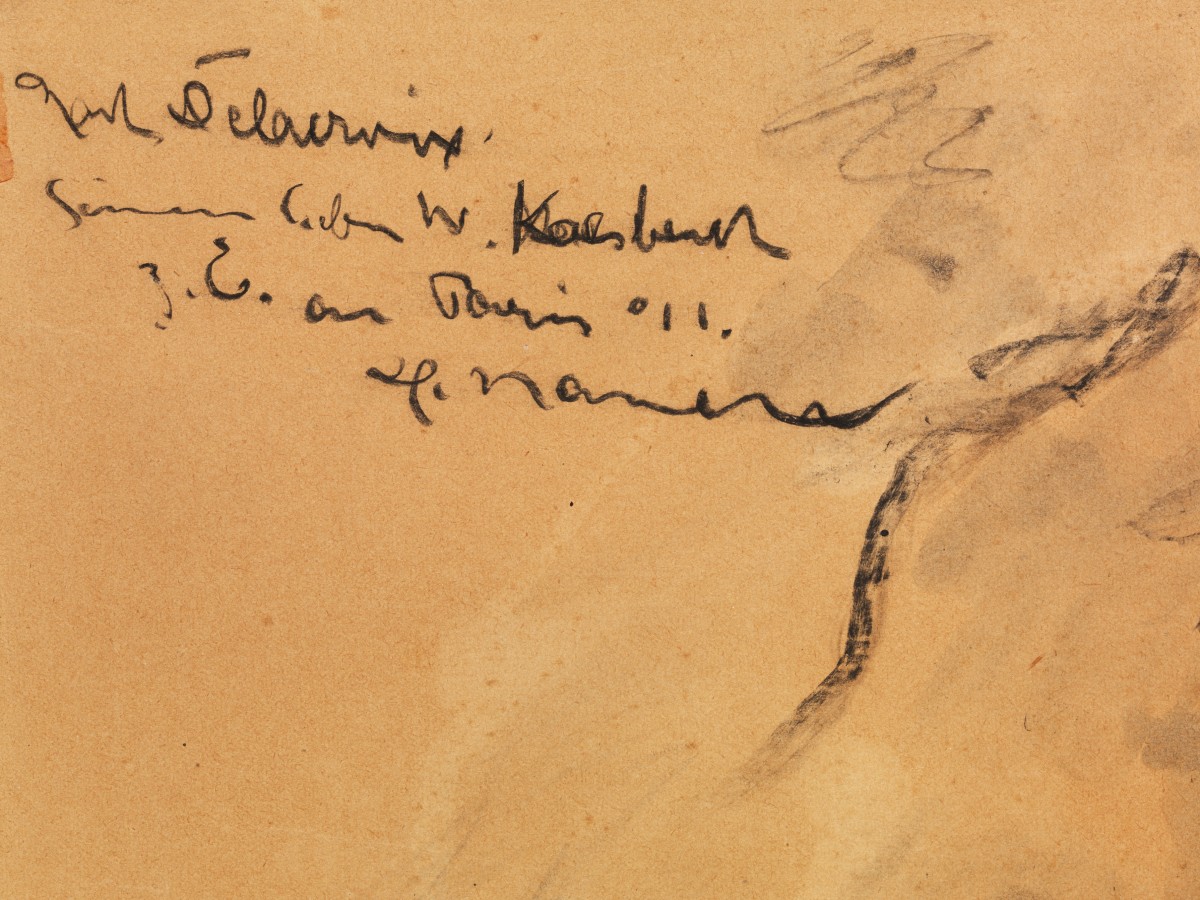 Nach Delacroix.
Seinem lieben W. Kaesbach
z. E. an Paris '11.
H. Nauen